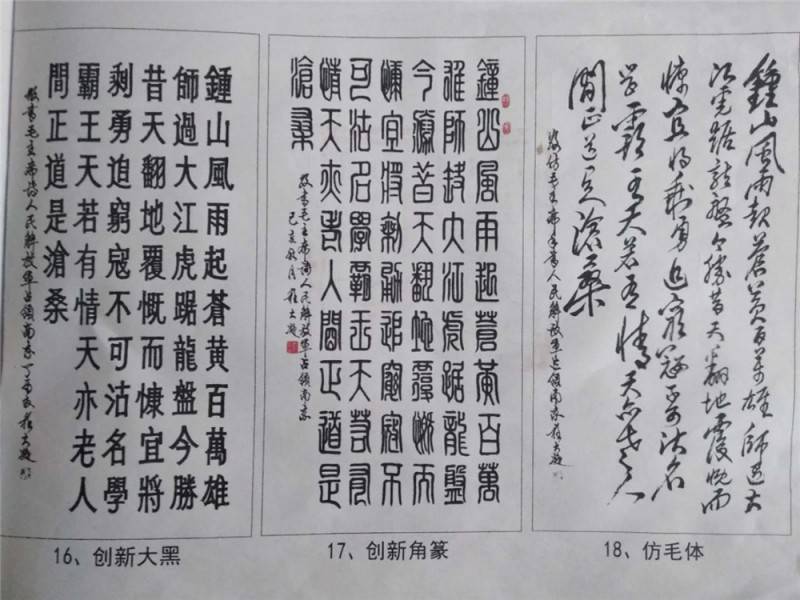 鍾山風雨起蒼黄百萬雄
師過大江虎踞龍盤今勝
昔天翻地覆慨而慷宜將
剩勇追窮寇不可沽名學
霸王天若有情天亦老人
間正道是滄桑
敬書毛主席詩人民解放軍占領南京
16、创新大黑
鐘山風雨起蒼黄百萬
雄師過大江虎踞龍盤
今勝昔天翻地覆慨而
慷宜將剩勇追窮寇不
可沽名學霸王天若有
情天亦老人間正道是
滄桑
敬書毛主席詩人民解放軍占領南京
己亥秋月
17、创新角篆
鍾山風雨起蒼黄百萬雄師過大
江虎踞龍盤今勝昔天翻地覆慨而
慷宜將剩勇追窮寇不可沽名
學霸王天若有情天亦老人
間正道是滄桑
敬仿毛主席手書人民解放軍占領南京
18、仿毛体